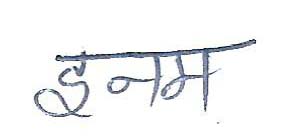 इनम